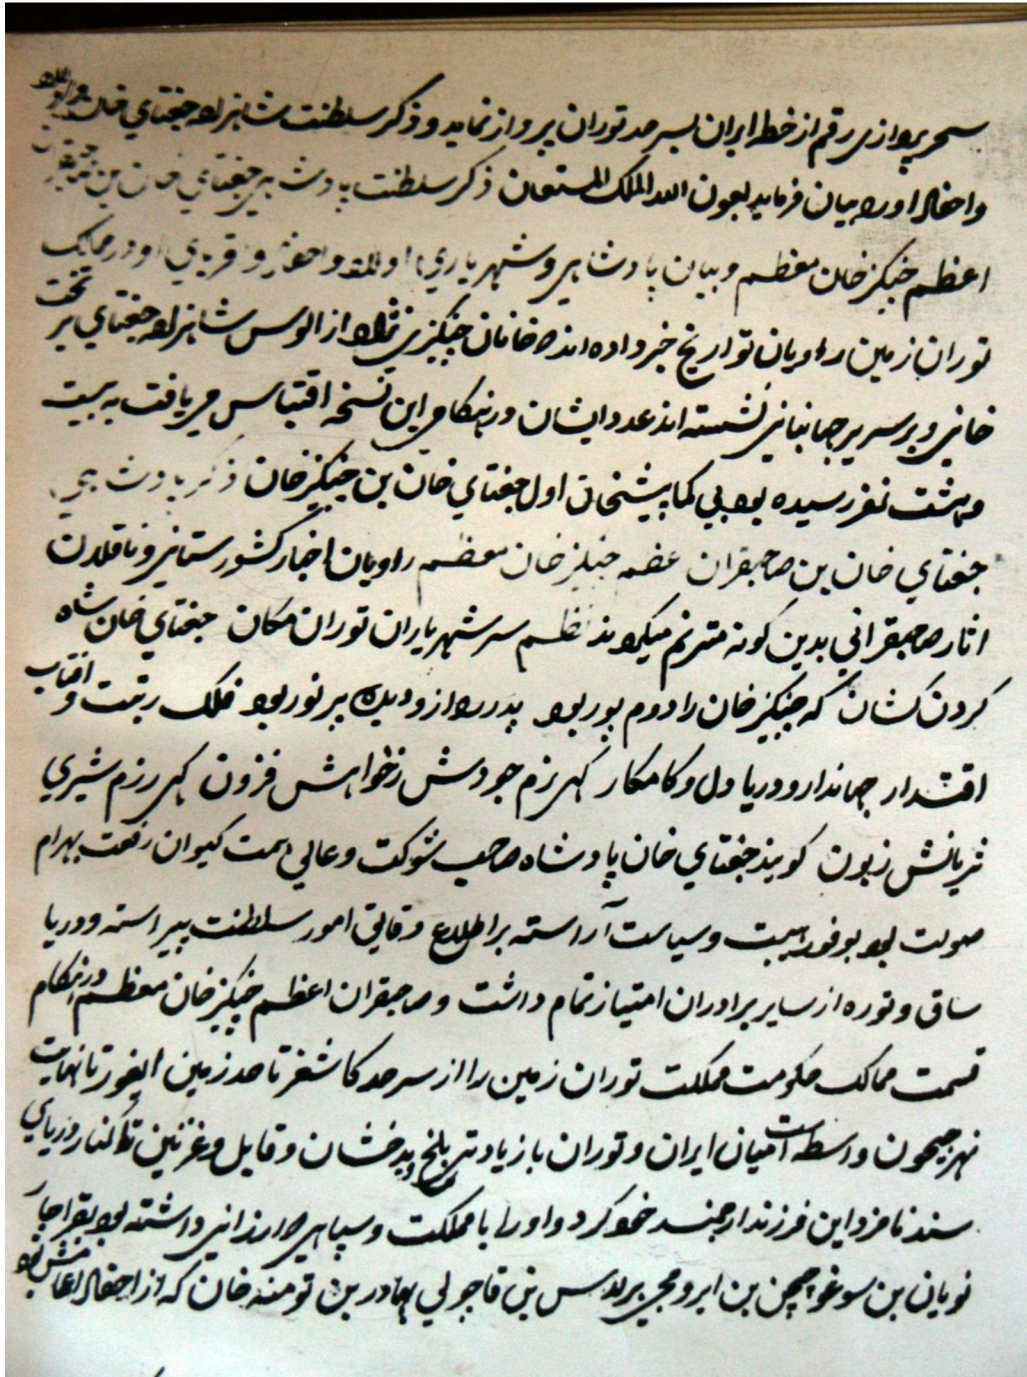 سحر پردازی رقم از خطه ایران بسرحد توران پرواز نماید و ذکر سلطنت شاهزاده جغتای خان و اولاد
و احفاد او را بیان فرماید بعون الله الملک المستعان ذکر سلطنت پادشاهی جغتای خان بن
اعظم چنگیز خان معظم و بیان پادشاهی و شهریاری اولاد و احفاد و او در ممالک
توران زمین راویان تواریخ خبر داده اند که خانان چنگیزی نژاد از الوس شاهزاده جغتای بر تخت
خانی و بر سریر جهانبانی نشسته اند عدد ایشان در هنگامی این نسخه اقتباس می یافت به بیست
و هشت نفر رسیده بود اول جغتای خان بن چنگیز خان ذکر پادشاهی
جغتای خان بن صاحبقران چنگیز خان معظم راویان اخبار کشورستانی و ناقلان
اثار صاحبقرانی بدین کونه مترنم میکردند نظم سر شهریاران توران مکان جغتای خان شاه
کردن کشان که چنگیز خان را دوم پور بود پدر را ازو دیده پر نور بود فلک رتبت و افتاب
اقتدار جهاندار و دریا دل و کامکار کهی بزم جودش زخواهش فزون کهی رزم شیری
ژیانش زبون کویند جغتای خان پادشاه صاحب شوکت و عالی همت کیوان رفعت بهرام
صولت بود بوفور هیبت و سیاست آراسته بر اطلاع دقایق امور سلطنت پیراسته و در یا
ساق و توره از سایر برادران امتیاز تمام داشت و صاحبقران اعظم چنگیز خان معظم در هنکام
قسمت ممالک حکومت مملکت توران زمین را از سرحد کاشغر تا حد زمین ایغور تا نهایت
نهر جیحون واسطه است میان ایران و توران با زیادتی بلخ و بدخشان و قابل و غزنین تا کنار دریای
سند نامزد این فرزند ارجمند خود کرد و او را با مملکت و سپاهی ارزانی داشته بود بقراجار
نویان بن سوغو چیچن بن ایرومجی برلاس بن قاجولی بهادر بن تومنه خان که از احفاد